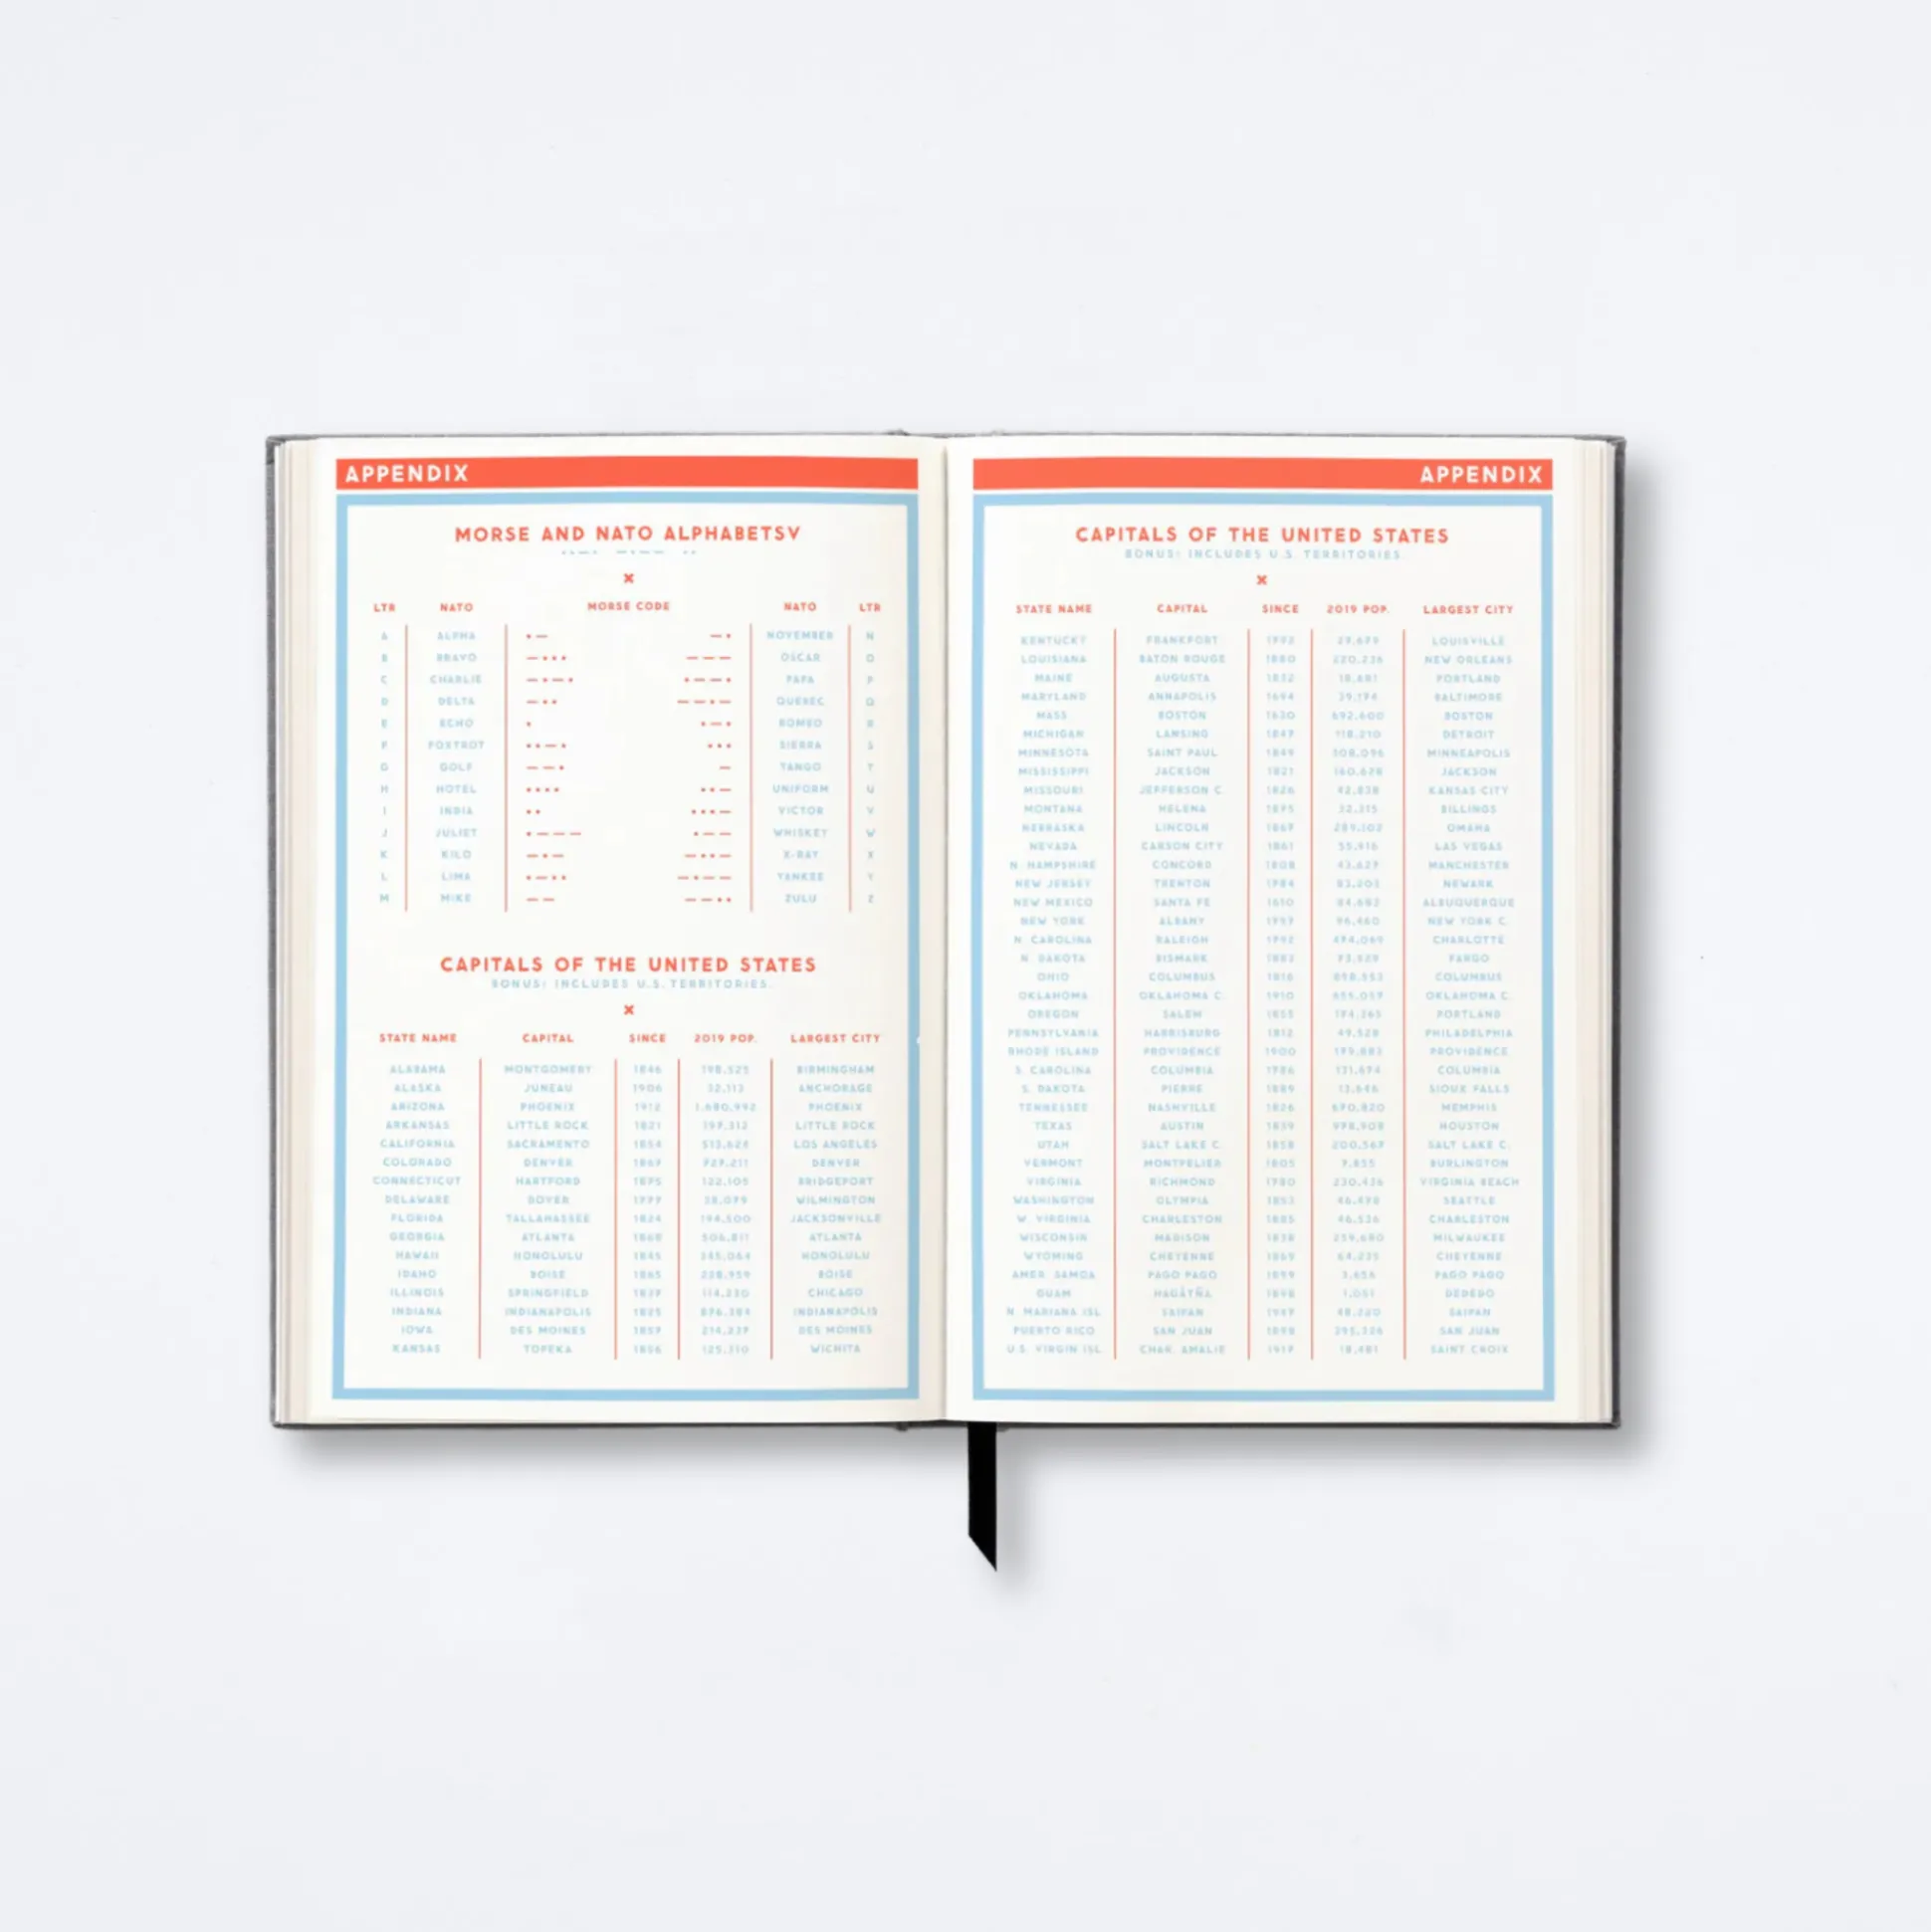 APPENDIX
MORSE AND NATO ALPHABETSV
×
LTR NATO MORSE CODE NATO LTR
A ALPHA •— —• NOVEMBER N
B BRAVO —••• ——— OSCAR O
C CHARLIE —•—• •——• PAPA P
D DELTA —•• ——•— QUEBEC Q
E ECHO • •—• ROMEO R
F FOXTROT ••—• ••• SIERRA S
G GOLF ——• — TANGO T
H HOTEL •••• ••— UNIFORM U
I INDIA •• •••— VICTOR V
J JULIET •——— •—— WHISKEY W
K KILO —•— —••— X-RAY X
L LIMA •—•• —•—— YANKEE Y
M MIKE —— ——•• ZULU Z
CAPITALS OF THE UNITED STATES
BONUS: INCLUDES U.S. TERRITORIES.
×
STATE NAME CAPITAL SINCE 2019 POP. LARGEST CITY
ALABAMA MONTGOMERY 1846 198,525 BIRMINGHAM
ALASKA JUNEAU 1906 32,113 ANCHORAGE
ARIZONA PHOENIX 1912 1,680,992 PHOENIX
ARKANSAS LITTLE ROCK 1821 197,312 LITTLE ROCK
CALIFORNIA SACRAMENTO 1854 513,624 LOS ANGELES
COLORADO DENVER 1867 DENVER
CONNECTICUT HARTFORD 1875 122,105 BRIDGEPORT
DELAWARE DOVER 1777 38,079 WILMINGTON
FLORIDA TALLAHASSEE 1824 194,500 JACKSONVILLE
GEORGIA ATLANTA 1868 506,811 ATLANTA
HAWAII HONOLULU 1845 345,064 HONOLULU
IDAHO BOISE 1865 228,959 BOISE
ILLINOIS SPRINGFIELD 1837 114,230 CHICAGO
INDIANA INDIANAPOLIS 1825 INDIANAPOLIS
IOWA DES MOINES 1857 214,237 DES MOINES
KANSAS TOPEKA 1856 125,310 WICHITA
APPENDIX
CAPITALS OF THE UNITED STATES
BONUS: INCLUDES U.S. TERRITORIES
×
STATE NAME CAPITAL SINCE 2019 POP. LARGEST CITY
KENTUCKY FRANKFORT 1792 LOUISVILLE
LOUISIANA BATON ROUGE 1880 220,236 NEW ORLEANS
MAINE AUGUSTA 1832 18,681 PORTLAND
MARYLAND ANNAPOLIS 1694 39,174 BALTIMORE
MASS BOSTON 1630 692,600 BOSTON
MICHIGAN LANSING 1847 118,210 DETROIT
MINNESOTA SAINT PAUL 1849 308,096 MINNEAPOLIS
MISSISSIPPI JACKSON 1821 160,628 JACKSON
MISSOURI JEFFERSON C. 1826 42,838 KANSAS CITY
MONTANA HELENA 1875 32,315 BILLINGS
NEBRASKA LINCOLN 1867 289,102 OMAHA
NEVADA CARSON CITY 1861 55,916 LAS VEGAS
N. HAMPSHIRE CONCORD 1808 43,627 MANCHESTER
NEW JERSEY TRENTON 1784 83,203 NEWARK
NEW MEXICO SANTA FE 1610 84,683 ALBUQUERQUE
NEW YORK ALBANY 1797 96,460 NEW YORK C.
N. CAROLINA RALEIGH 1792 474,069 CHARLOTTE
N. DAKOTA BISMARK 1883 73,529 FARGO
OHIO COLUMBUS 1816 898,553 COLUMBUS
OKLAHOMA OKLAHOMA C. 1910 655,057 OKLAHOMA C.
OREGON SALEM 1855 174,365 PORTLAND
PENNSYLVANIA HARRISBURG 1812 49,528 PHILADELPHIA
RHODE ISLAND PROVIDENCE 1900 179,883 PROVIDENCE
S. CAROLINA COLUMBIA 1786 131,674 COLUMBIA
S. DAKOTA PIERRE 1889 13,646 SIOUX FALLS
TENNESSEE NASHVILLE 1826 670,820 MEMPHIS
TEXAS AUSTIN 1839 978,908 HOUSTON
UTAH SALT LAKE C. 1858 200,567 SALT LAKE C.
VERMONT MONTPELIER 1805 7,855 BURLINGTON
VIRGINIA RICHMOND 1780 230,436 VIRGINIA BEACH
WASHINGTON OLYMPIA 1853 46,478 SEATTLE
W. VIRGINIA CHARLESTON 1885 46,536 CHARLESTON
WISCONSIN MADISON 1838 259,680 MILWAUKEE
WYOMING CHEYENNE 1869 64,235 CHEYENNE
AMER. SAMOA PAGO PAGO 1899 3,656 PAGO PAGO
GUAM HAGÅTÑA 1898 1,051 DEDEDO
N. MARIANA ISL. SAIPAN 1947 48,220 SAIPAN
PUERTO RICO SAN JUAN 1898 SAN JUAN
U.S. VIRGIN ISL. CHAR. AMALIE 1917 18,481 SAINT CROIX